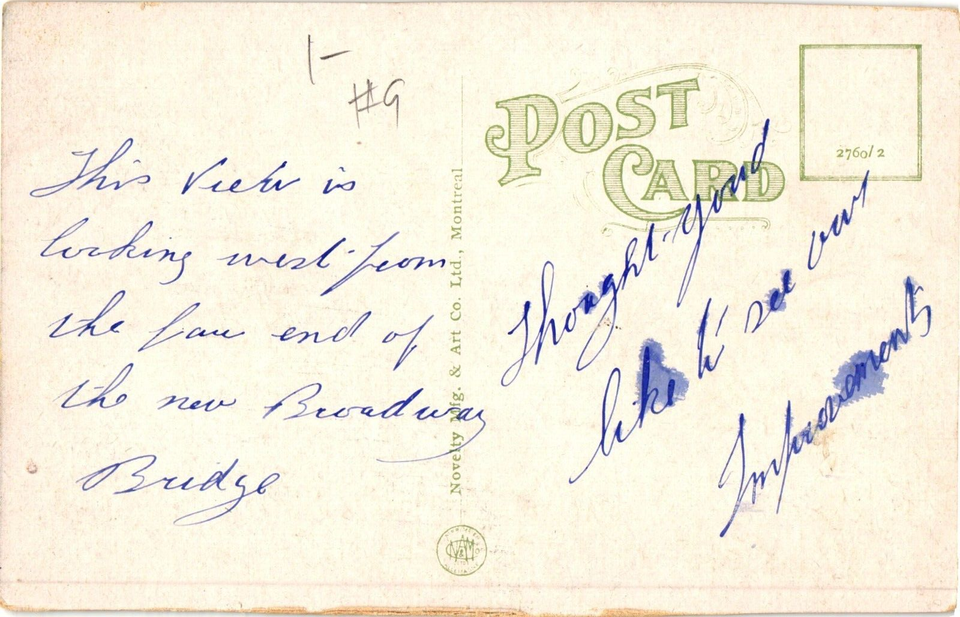 1-
#9
This View is
looking west from
the far end of
the new Broadway
Bridge
Novelty Mfg. & Art Co. Ltd., Montreal
POST
CARD
2760/2
Thought you'd
like to see our
Improvements